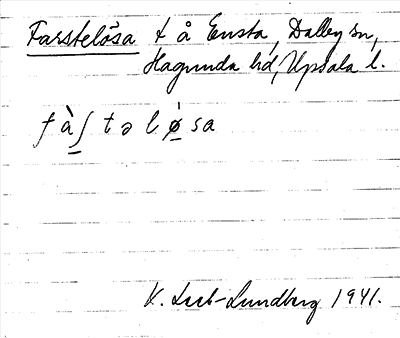 Farstelösa t å Ensta, Dalby sn,
Hagunda hd, Upsala l.
fàʃtəløsa
V. Lundberg 1941.